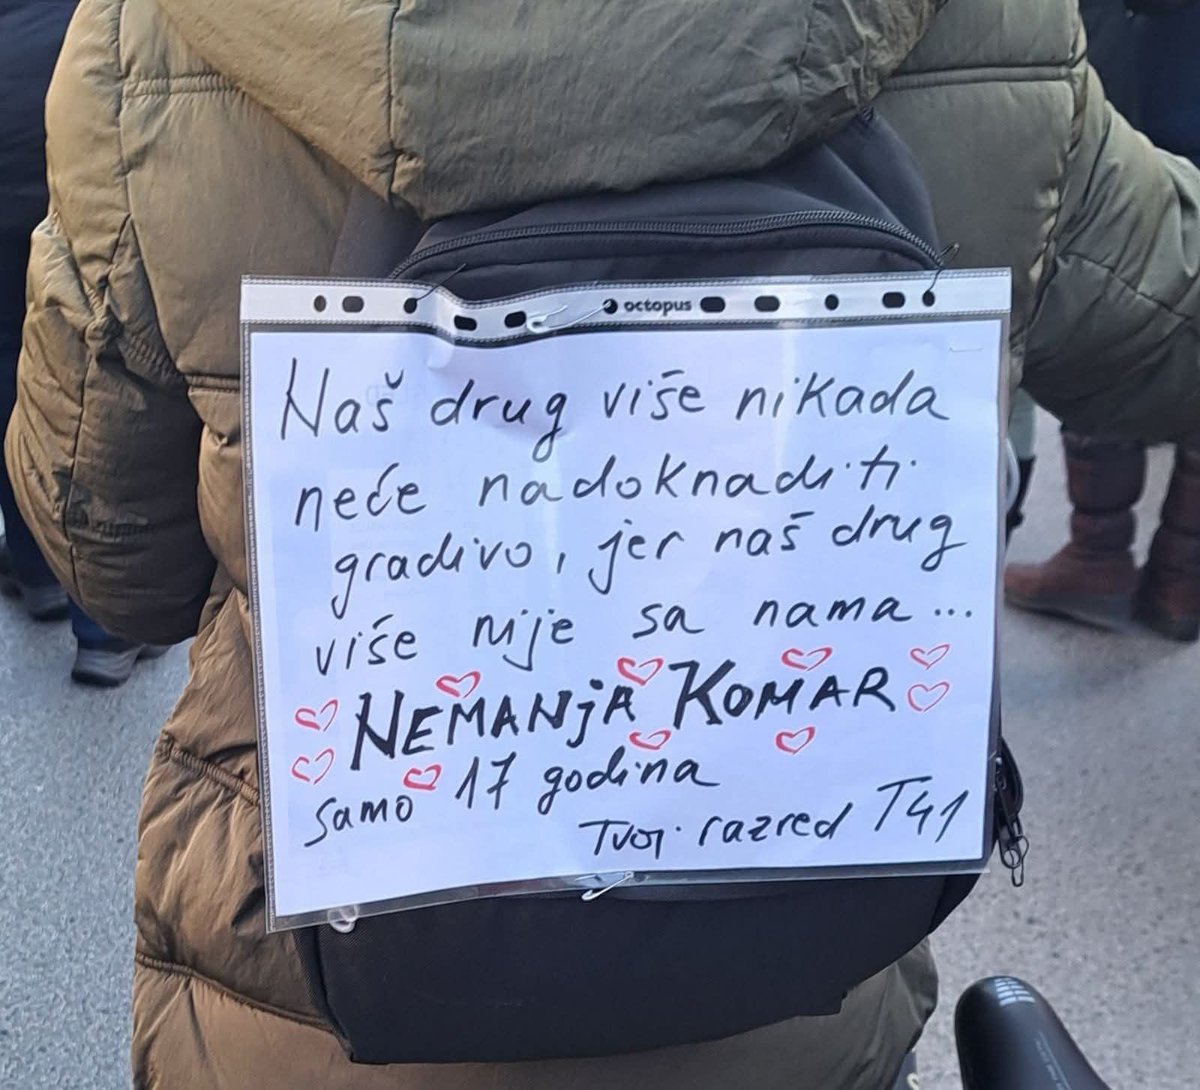 octopus
Naš drug više nikada
neće nadoknaditi
gradivo, jer naš drug
više nije sa nama...
NEMANjA KOMAR
samo 17 godina
Tvoj razred T41